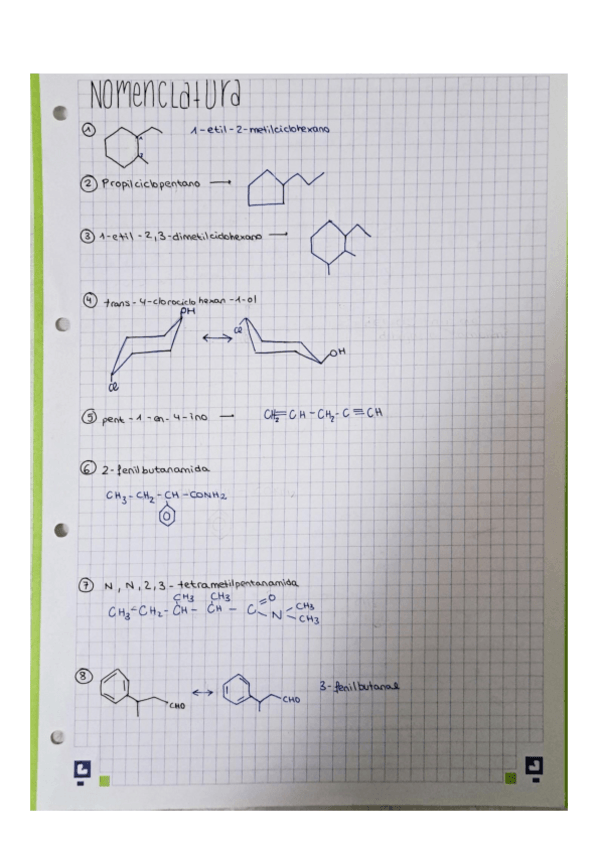 NOMENCLATURA
① 1-etil-2-metilciclohexano
1
2
② Propilciclopentano →
③ 1-etil-2,3-dimetilciclohexano →
④ trans-4-clorociclohexan-1-ol
OH Cl
↔ OH
Cl
⑤ pent-1-en-4-ino → CH₂=CH-CH₂-C≡CH
⑥ 2-fenilbutanamida
CH₃-CH₂-CH-CONH₂
⑦ N,N,2,3-tetrametilpentanamida
CH₃ CH₃ O
CH₃-CH₂-CH-CH-C-N-CH₃
CH₃
⑧ CHO ↔ CHO 3-fenilbutanal